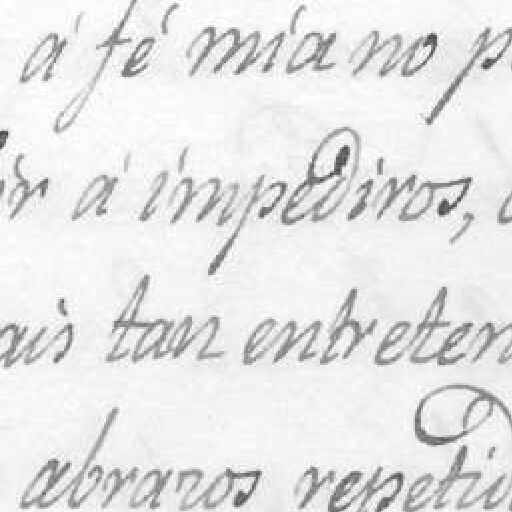 á fé mía no p
ir á ímpediros,
ais tan entreten
abrazos repetid